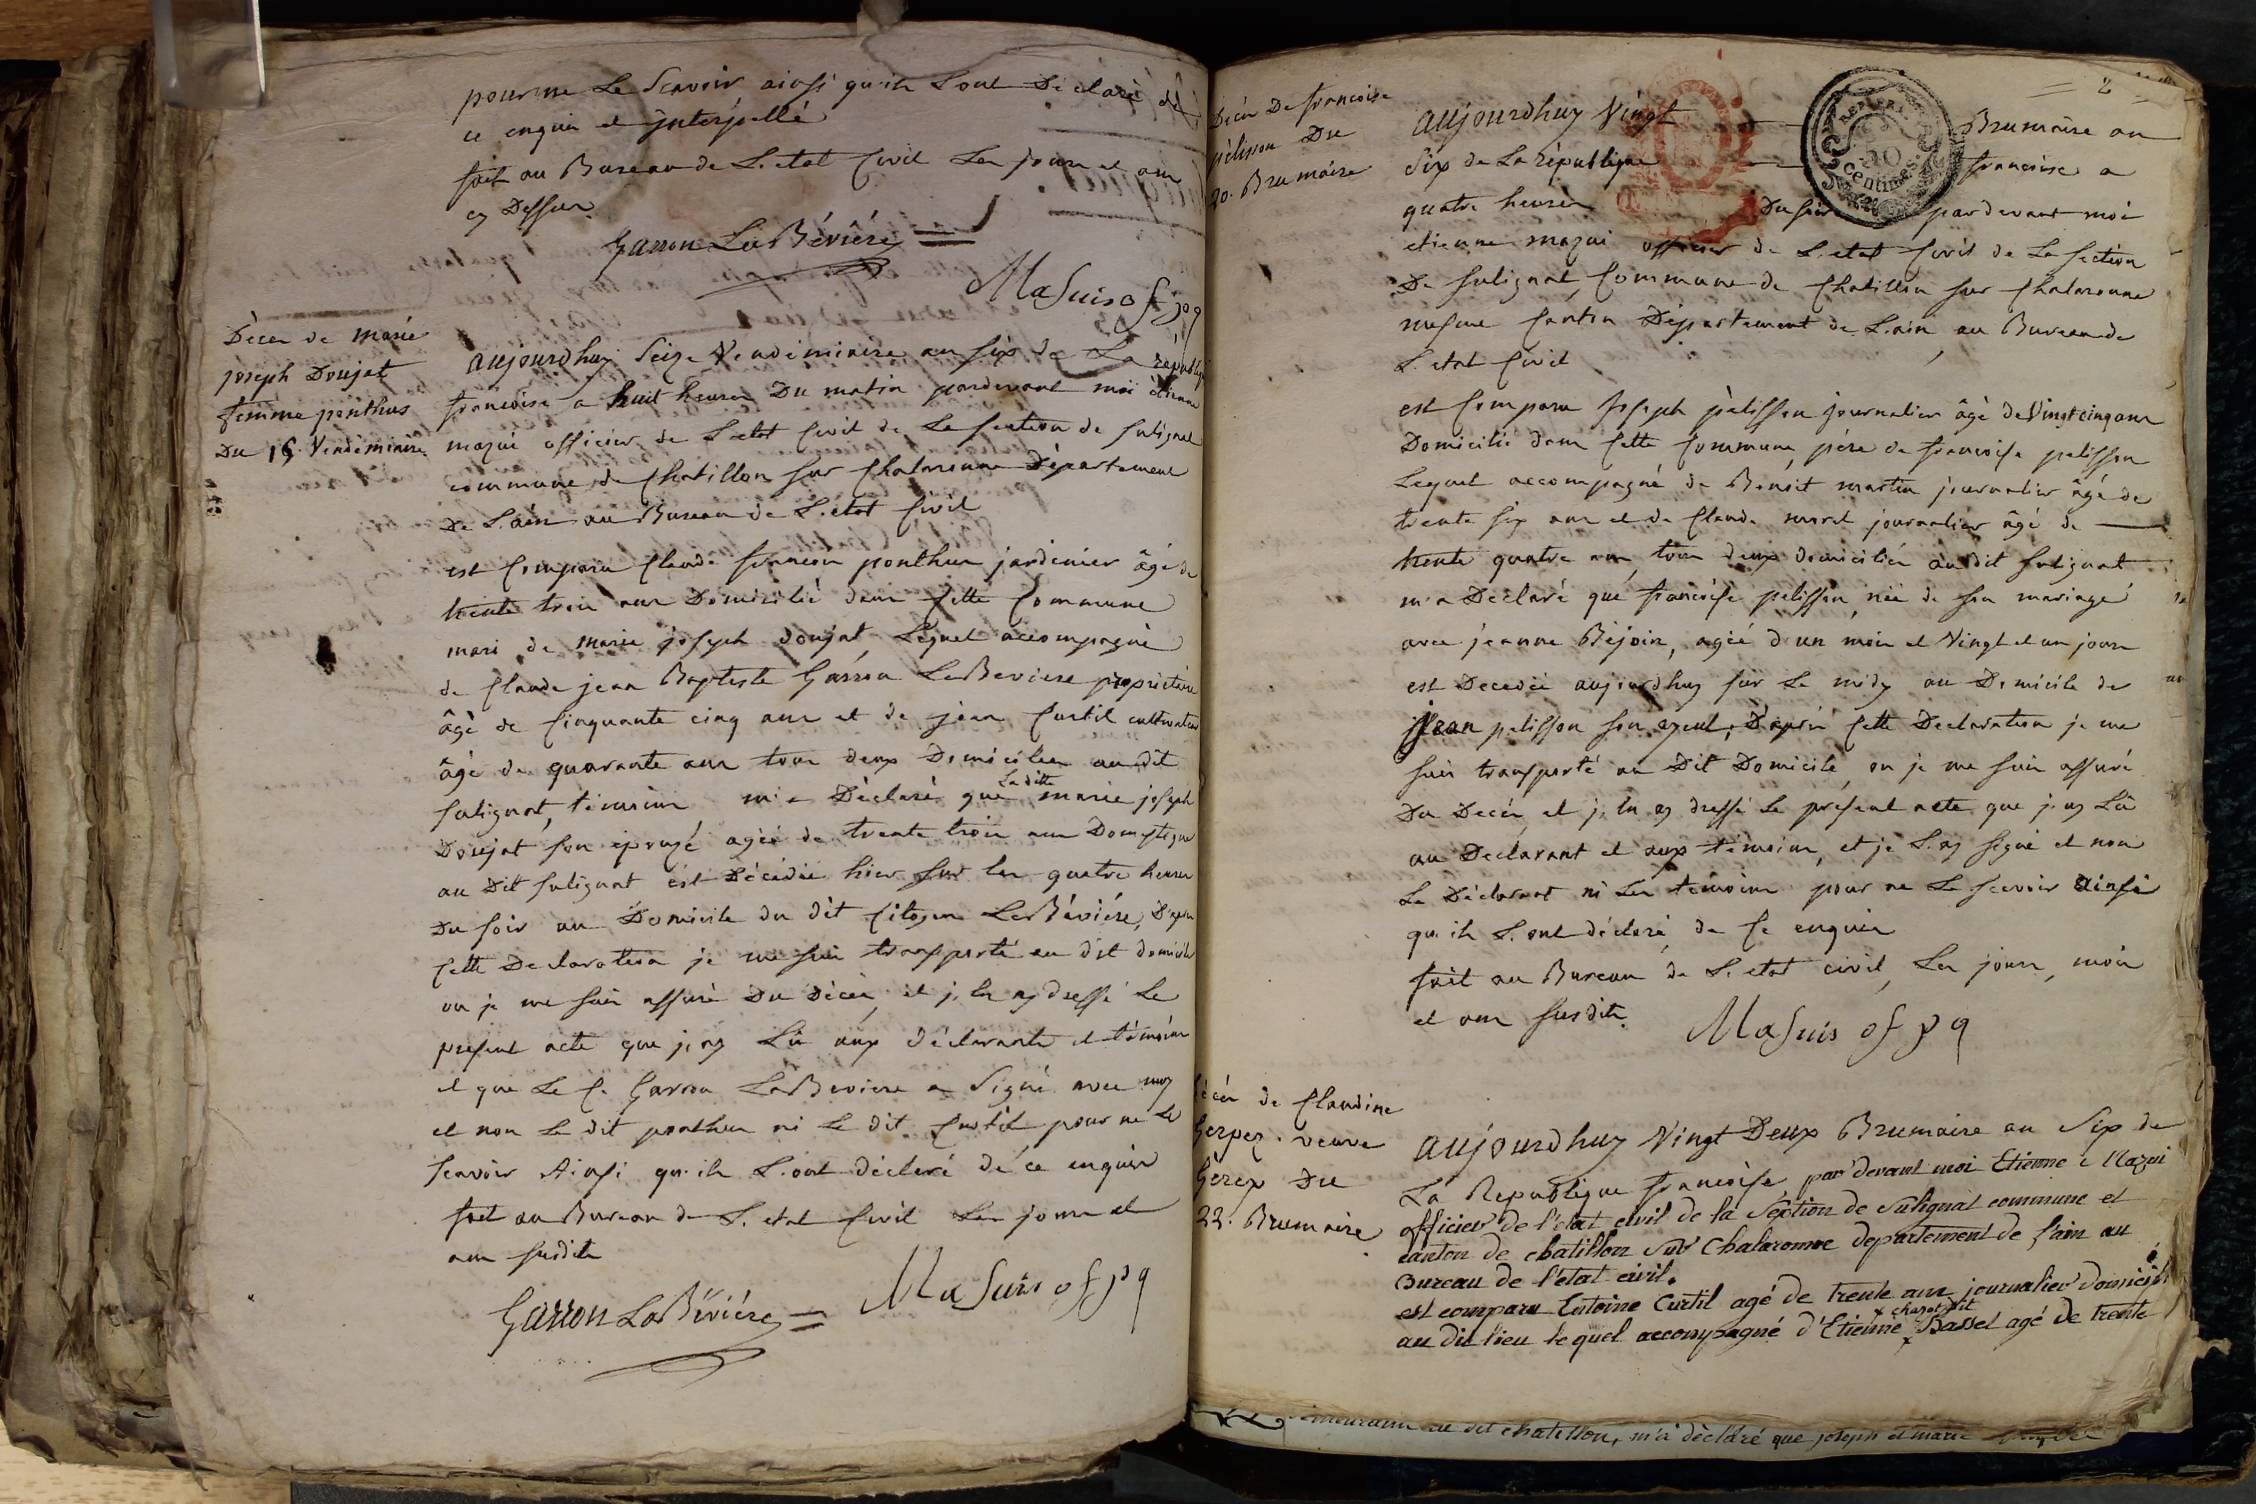 pour ne le Scavoir ainsi qu'ils l'ont Déclaré de
ce enquis et jnterpellé
fait au Bureau de L'etat Civil Les jours et an
cy Dessus.
Garron La Bévière
Masuis of pq
Décès de marie
joseph Doujat
femme ponthus
Du 16 Vendémiaire
aujourdhuy Seize Vendémiaire an six de La républiq
francoise a huit heures Du matin pardevant moi étienne
mazui officier de L'etat Civil de La section de sulignat
commune de Chatillon sur Chalaronne Département
De L'ain au Bureau de L'etat Civil
est Comparu Claude francois ponthus jardinier âgé de
trente trois ans Domicilié dans Cette Commune
mari de marie joseph doujat, Lequel accompagné
de Claude jean Baptiste Garron LaBeviere propriétaire
âgé de Cinquante cinq ans et de jean Curtil cultivateur
âgé de quarante ans tous deux Domiciliés au dit
sulignat, témoins m'a Déclaré que La ditte marie joseph
Doujat son epouzé agée de trente trois ans Domestique
au Dit sulignat est Décédée hier sur les quatre heures
Du soir au Domicile du dit Citoyen LaBéviére, D'après
Cette Declaration je me suis transporté au dit domicile
ou je me suis assuré Du Décès, et j'en ay dressé Le
present acte que j'ay Lû aux déclarants et témoins
et que Le C. Garron LaBeviere a Signé avec moy
et non Le dit ponthus ni Le dit Curtil pour ne Le
Scavoir Ainsi qu'ils L'ont déclaré de ce enquis
fait au Bureau de L'etat Civil Les jours et
an susdits
Garron LaBéviére
Masuis of pq
2
Décès De francoise
pélisson Du
20. Brumaire
aujourdhuy Vingt Brumaire an
six de La république francoise a
quatre heures Du soir pardevant moi
etienne mazui officier de L'etat Civil de La section
De sulignat, Commune de Chatillon sur Chalaronne
mesme Canton Département de L'ain, au Bureau de
L'etat Civil
est Comparu Joseph pèlisson journalier âgé de Vingt cinq ans
Domicilié dans Cette Commune, père de francoise pelisson
Lequel accompagné de Benoit martin journalier âgé de
trente six ans et de Claude morel journalier âgé de
trente quatre ans, tous deux domiciliés au dit sulignat
m'a Déclaré que francoise pelisson, née de son mariage
avec jeanne Béjoin, agée d'un mois et Vingt et un jours
est Decedée aujourdhuy sur Le midy au Domicile de
jean pelisson son ayeul; D'après Cette Declaration je me
suis transporté au Dit Domicile, ou je me suis assuré
Du Decès, et j'en ay dressé Le present acte que j'ay Lû
au Declarant et aux témoins, et je L'ay signé et non
Le Déclarant ni Les témoins pour ne Le scavoir ainsi
qu'ils L'ont déclaré, de Ce enquis
fait au Bureau de L'etat civil, Les jours, mois
et an susdits.
Masuis of pq
Décès de Claudine
Gerpez veuve
Gérez Du
22. Brumaire
aujourdhuy Vingt Deux Brumaire an Six de
La Republique francoise par devant moi Etienne Mazui
officier de l'etat civil de la Section de Sulignat commune et
canton de chatillon sur Chalaronne departement de l'ain au
Bureau de l'etat civil.
est comparu Entoine Curtil agé de trente ans journalier domicilié
au dit lieu lequel accompagné d'Etienne chazot dit Bassel agé de trente
au dit chatillon, m'a déclaré que joseph et marie